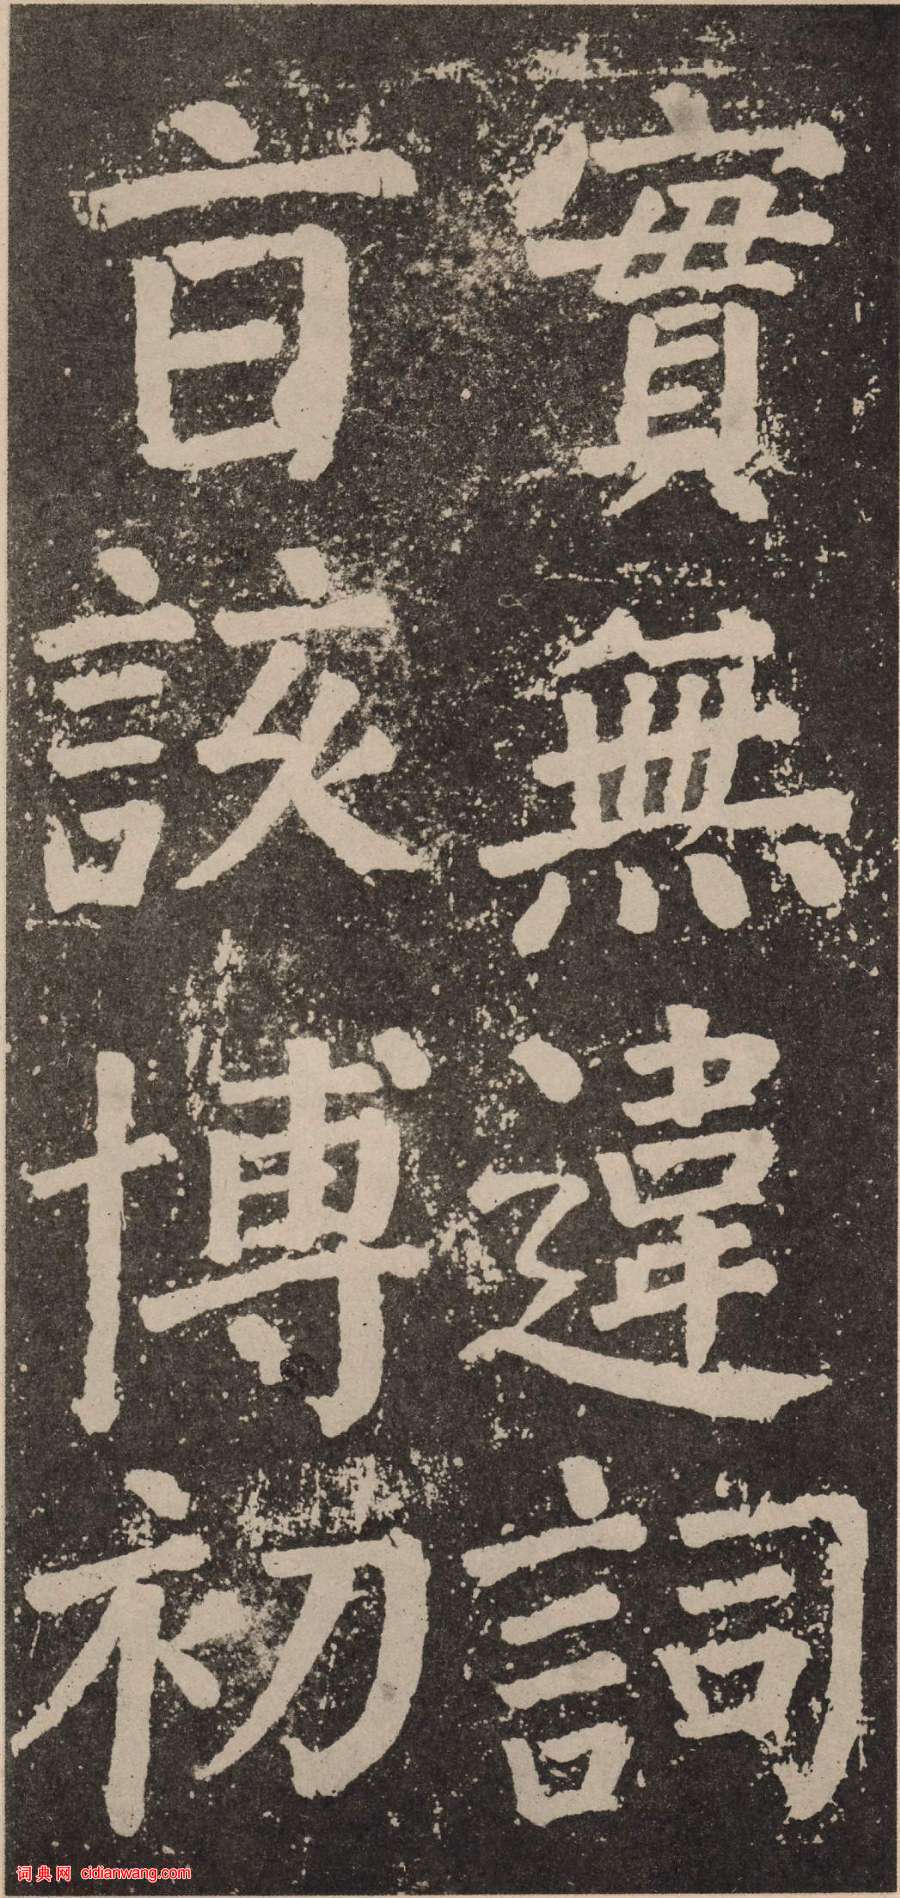 實無違詞
㫖該博初
词典网 cidianwang.com